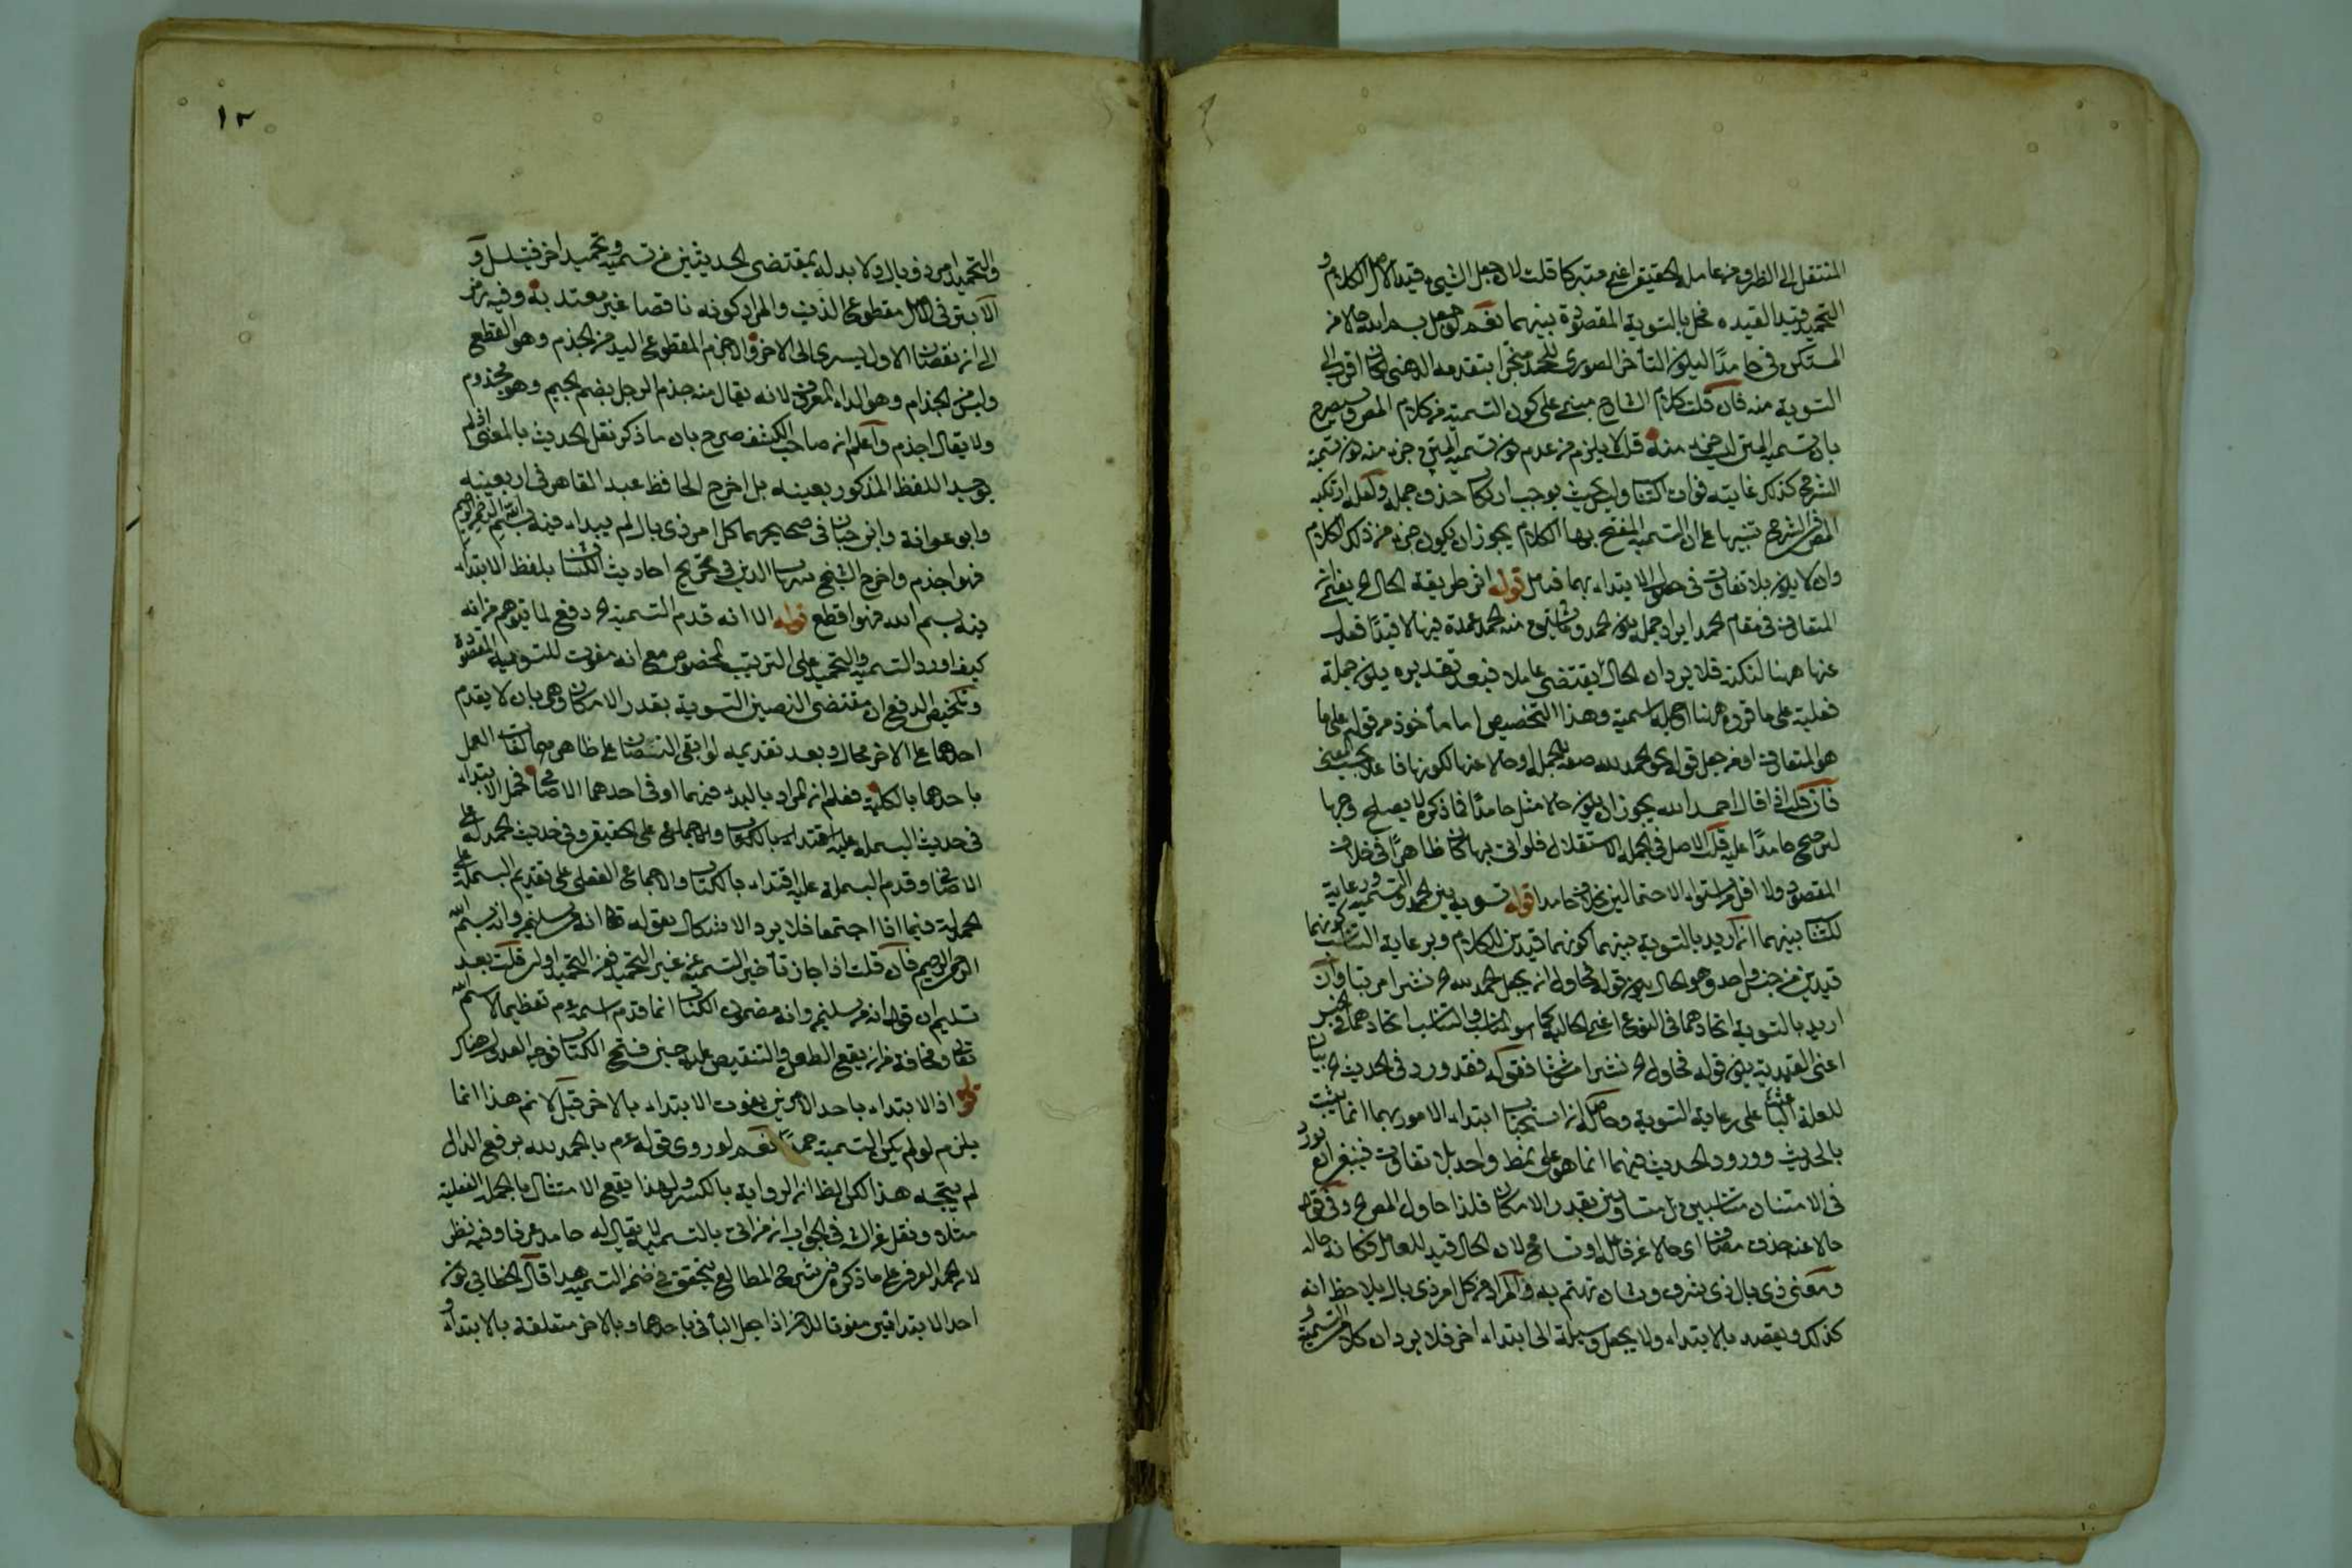 المنتقل الى الظرف من عامله الحقيقى اعنى متبركا قلت لان جعل الشيئ قيدا لاصل الكلام و
التحميد قيدا لقيده مخل بالتسوية المقصودة بينهما نعم لو جعل بسم الله حالا من
المستكن فى حامدا ليكون التأخر الصورى للحمد منجبرا بتقدمه الذهنى كان اقرب الى
التسوية منه فان قلت كلام الشارح مبنى على كون التسمية من كلام المص وسيصرح
بان تسمية المتن ليست جزء منه قلت لا يلزم من عدم كون تسمية المتن جزء منه كون تسمية
الشرح كذلك غايته فوات
المص فى الشرح تنبيها على ان التسمية المفتتح بها الكلام يجوز ان يكون جزء من ذلك الكلام
وان لا يكون بلا تفاوت فى حصول الابتداء بهما فتأمل قوله اثر طريقة الحال الخ يعنى ان
المتعارف فى مقام الحمد ايراد جملة يكون الحمد وما يشتق منه الحمد عمدة فيها لا قيدا فعدل
عنها ههنا لنكتة فلا يرد ان الحال يقتضى عاملا فبعد تقديره يكون جملة
فعلية على ما قرره ههنا او جملة اسمية وهذا التخصيص اما مأخوذ من قوله على ما
هو المتعارف او من جعل قوله نحو الحمد لله صفة للجملة او حالا عنها لكونها فاعلا بحسب المعنى
فان قلت اذا قال احمد الله يجوز ان يكون حالا مثل حامدا فما ذكره لا يصلح وجها
لترجيح حامدا عليه قلت الاصل فى الجملة الاستقلال فلو اتى بها كان ظاهرا فى خلاف
المقصود ولا اقل من استواء الاحتمالين بخلاف حامدا قوله تسوية بين الحمد والتسمية ورعاية
لتناسب بينهما ان اريد بالتسوية بينهما كونهما قيدين للكلام وبرعاية التناسب كونهما
قيدين من جنس واحد وهو الحال يكون قوله فحاول ان يجعل الحمد لله الخ نشرا مرتبا وان
اريد بالتسوية اتحادهما فى النوع اعنى الحالية كما هو المناسب وبالتناسب اتحادهما فى الجنس
اعنى القيدية يكون قوله فحاول الخ نشرا مشوشا فقوله فقد ورد فى الحديث الخ بيان
للعلة الباعثة على رعاية التسوية وحاصله ان استحباب ابتداء الامور بهما انما يثبت
بالحديث وورود الحديث فيهما انما هو على نمط واحد بلا تفاوت فينبغى ان يورد
فى الامتثال متناسبين بل متساويين بقدر الامكان فلذا حاول المص الخ وفى قوله
حالا عنه حذف مضاف اى حالا عن فاعله او تسامح لان الحال قيد للعامل فكانه حاله
ومعنى ذى بال ذى شرف وشان يهتم به والمراد من كل امر ذى بال يلاحظ انه
كذلك ويقصد بالابتداء ولا يجعل وسيلة الى ابتداء اخر فلا يرد ان كلا من التسمية و
١٢
والتحميد امر ذو بال ولا بد له بمقتضى الحديثين من تسمية وتحميد اخر فيتسلسل و
الابتر فى الاصل مقطوع الذنب والمراد كونه ناقصا غير معتد به وفيه رمز
الى ان نقصان الاول يسرى الى الاخر والاجذم المقطوع اليد من الجذم وهو القطع
وليس من الجذام وهو الداء المعروف لانه يقال منه جذم الرجل بضم الجيم وهو مجذوم
ولا يقال اجذم واعلم ان صاحب الكشف صرح بان ما ذكر نقل الحديث بالمعنى اذ لم
يوجد اللفظ المذكور بعينه بل اخرج الحافظ عبد القاهر فى اربعينه
وابو عوانة وابن حبان فى صحيحيهما كل امر ذى بال لم يبداء فيه ببسم الله الرحمن الرحيم
فهو اجذم واخرج الشيخ بهاء الدين فى تخريج احاديث الكشاف بلفظ الابتداء
فيه بسم الله فهو اقطع قوله الا انه قدم التسمية الخ دفع لما يتوهم من انه
كيف اورد التسمية والتحميد على الترتيب المخصوص مع انه مفوت للتسوية المقصودة
وتلخيص الدفع ان مقتضى النصين التسوية بقدر الامكان وهى بان لا يقدم
احدهما على الاخر محال وبعد تقديمه لو ابقى النصان على ظاهرهما لفات العمل
باحدهما بالكلية فعلم ان المراد بالبدء فيهما او فى احدهما الاضافى فحمل الابتداء
فى حديث البسملة عليه اقتداء بالكتاب والاجماع على الحقيقى وفى حديث الحمدلة على
الاضافى وقدم البسملة عليه اقتداء بالكتاب والاجماع الفعلى على تقديم البسملة على
الحمدلة فيما اذا اجتمعا فلا يرد الاشكال بقوله تعالى انه من سليمن وانه بسم الله
الرحمن الرحيم فان قلت اذا جاز تأخير التسمية عن غير التحميد فعن التحميد اولى قلت بعد
تسليم ان قوله انه من سليمن وانه مضمون الكتاب انما قدم اسمه عم تعظيما لاسم الله
تعالى ومخافة من ان يقع الطعن والتنقيص عليه حين فتح الكتاب فوجه العدول هناك
قوله اذ الابتداء باحد الامرين يفوت الابتداء بالاخر قيل لا نم هذا انما
يلزم لو لم يكن التسمية حمدا نعم لو روى قوله عم بالحمد لله برفع الدال
لم يتجه هذا لكن الظ ان الرواية بالكسر ولهذا يقع الامتثال بالجملة الفعلية
مثلا ونقل عن الش فى الجواب ان من اتى بالتسمية لا يقال له حامد عرفا وفيه نظر
لان الحمد العرفى على ما ذكره فى شرح المطالع يتحقق فى ضمن التسمية هذا قال الخطابى كون
احد الابتدائين مفوتا للاخر اذا جعل الباء فى باحدهما وبالاخر متعلقة بالابتداء